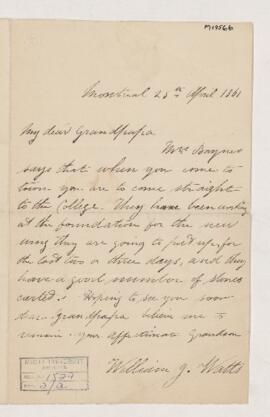 M19566
Montreal 25th April 1861
My dear Grandpapa
Mrs Baynes
says that when you come to
town you are to come straight
to the College. They have been working
at the foundation for the new
wing they are going to put up, for
the last two or three days, and they
have a good number of stones
carted. Hoping to see you soon
dear Grandpapa believe me to
remain your affectionate Grandson
William J. Watts
McGILL UNIVERSITY
ARCHIVES
ACC. NO. 1527